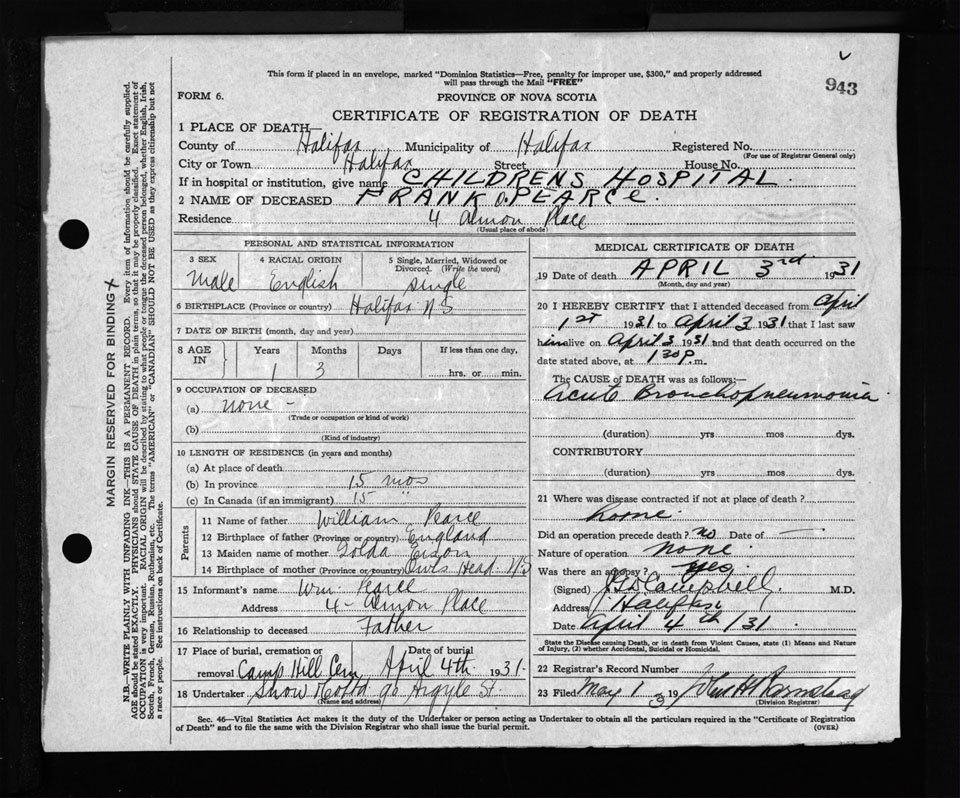 943
This form if placed in an envelope, marked "Dominion Statistics—Free, penalty for improper use, $300," and properly addressed
will pass through the Mail "FREE"
FORM 6.
PROVINCE OF NOVA SCOTIA
CERTIFICATE OF REGISTRATION OF DEATH
1 PLACE OF DEATH—
County of Halifax Municipality of Halifax Registered No.
(For use of Registrar General only)
City or Town Halifax Street House No.
If in hospital or institution, give name CHILDRENS HOSPITAL.
2 NAME OF DECEASED FRANK D. PEARCE.
Residence 4 Almon Place
(Usual place of abode)
PERSONAL AND STATISTICAL INFORMATION
3 SEX 4 RACIAL ORIGIN 5 Single, Married, Widowed or
Divorced. (Write the word)
Male English Single
6 BIRTHPLACE (Province or country) Halifax N S
7 DATE OF BIRTH (month, day and year)
8 AGE IN Years Months Days If less than one day,
1 3 hrs. or min.
9 OCCUPATION OF DECEASED
(a) none -
(Trade or occupation or kind of work)
(b)
(Kind of industry)
10 LENGTH OF RESIDENCE (in years and months)
(a) At place of death
(b) In province 15 mos
(c) In Canada (if an immigrant) 15 "
Parents
11 Name of father William Pearce
12 Birthplace of father (Province or country) England
13 Maiden name of mother Golda
14 Birthplace of mother (Province or country) Owls Head N S
15 Informant's name Wm. Pearce
Address 4 - Almon Place
16 Relationship to deceased Father
17 Place of burial, cremation or Date of burial
removal Camp Hill Cem April 4th 1931.
18 Undertaker Snow & Co Ltd 90 Argyle St.
(Name and address)
MEDICAL CERTIFICATE OF DEATH
19 Date of death APRIL 3rd 1931
(Month, day and year)
20 I HEREBY CERTIFY that I attended deceased from April
1st 1931 to April 3 1931 that I last saw
him alive on April 3 1931 and that death occurred on the
date stated above, at 1 30 P. m.
The CAUSE of DEATH was as follows:—
Acute Bronchopneumonia
(duration) yrs mos dys.
CONTRIBUTORY
(duration) yrs mos dys.
21 Where was disease contracted if not at place of death?
home.
Did an operation precede death? no Date of —
Nature of operation none
Was there an autopsy? yes
(Signed) Campbell. M.D.
Address Halifax
Date April 4th /31
State the Disease causing Death, or in death from Violent Causes, state (1) Means and Nature
of Injury, (2) whether Accidental, Suicidal or Homicidal.
22 Registrar's Record Number
23 Filed May 1 193 John H Barnstead
(Division Registrar)
Sec. 46—Vital Statistics Act makes it the duty of the Undertaker or person acting as Undertaker to obtain all the particulars required in the "Certificate of Registration
of Death" and to file the same with the Division Registrar who shall issue the burial permit. (OVER)
MARGIN RESERVED FOR BINDING
N.B.—WRITE PLAINLY WITH UNFADING INK—THIS IS A PERMANENT RECORD. Every item of information should be carefully supplied.
AGE should be stated EXACTLY. PHYSICIANS should STATE CAUSE OF DEATH in plain terms, so that it may be properly classified. Exact statement of
OCCUPATION is very important. RACIAL ORIGIN will be described by stating to what people or tongue the deceased person belonged, whether English, Irish,
Scotch, French, German, Russian, Ruthenian, etc. The terms "AMERICAN" or "CANADIAN" SHOULD NOT BE USED as they express citizenship but not
a race or people. See instructions on back of Certificate.